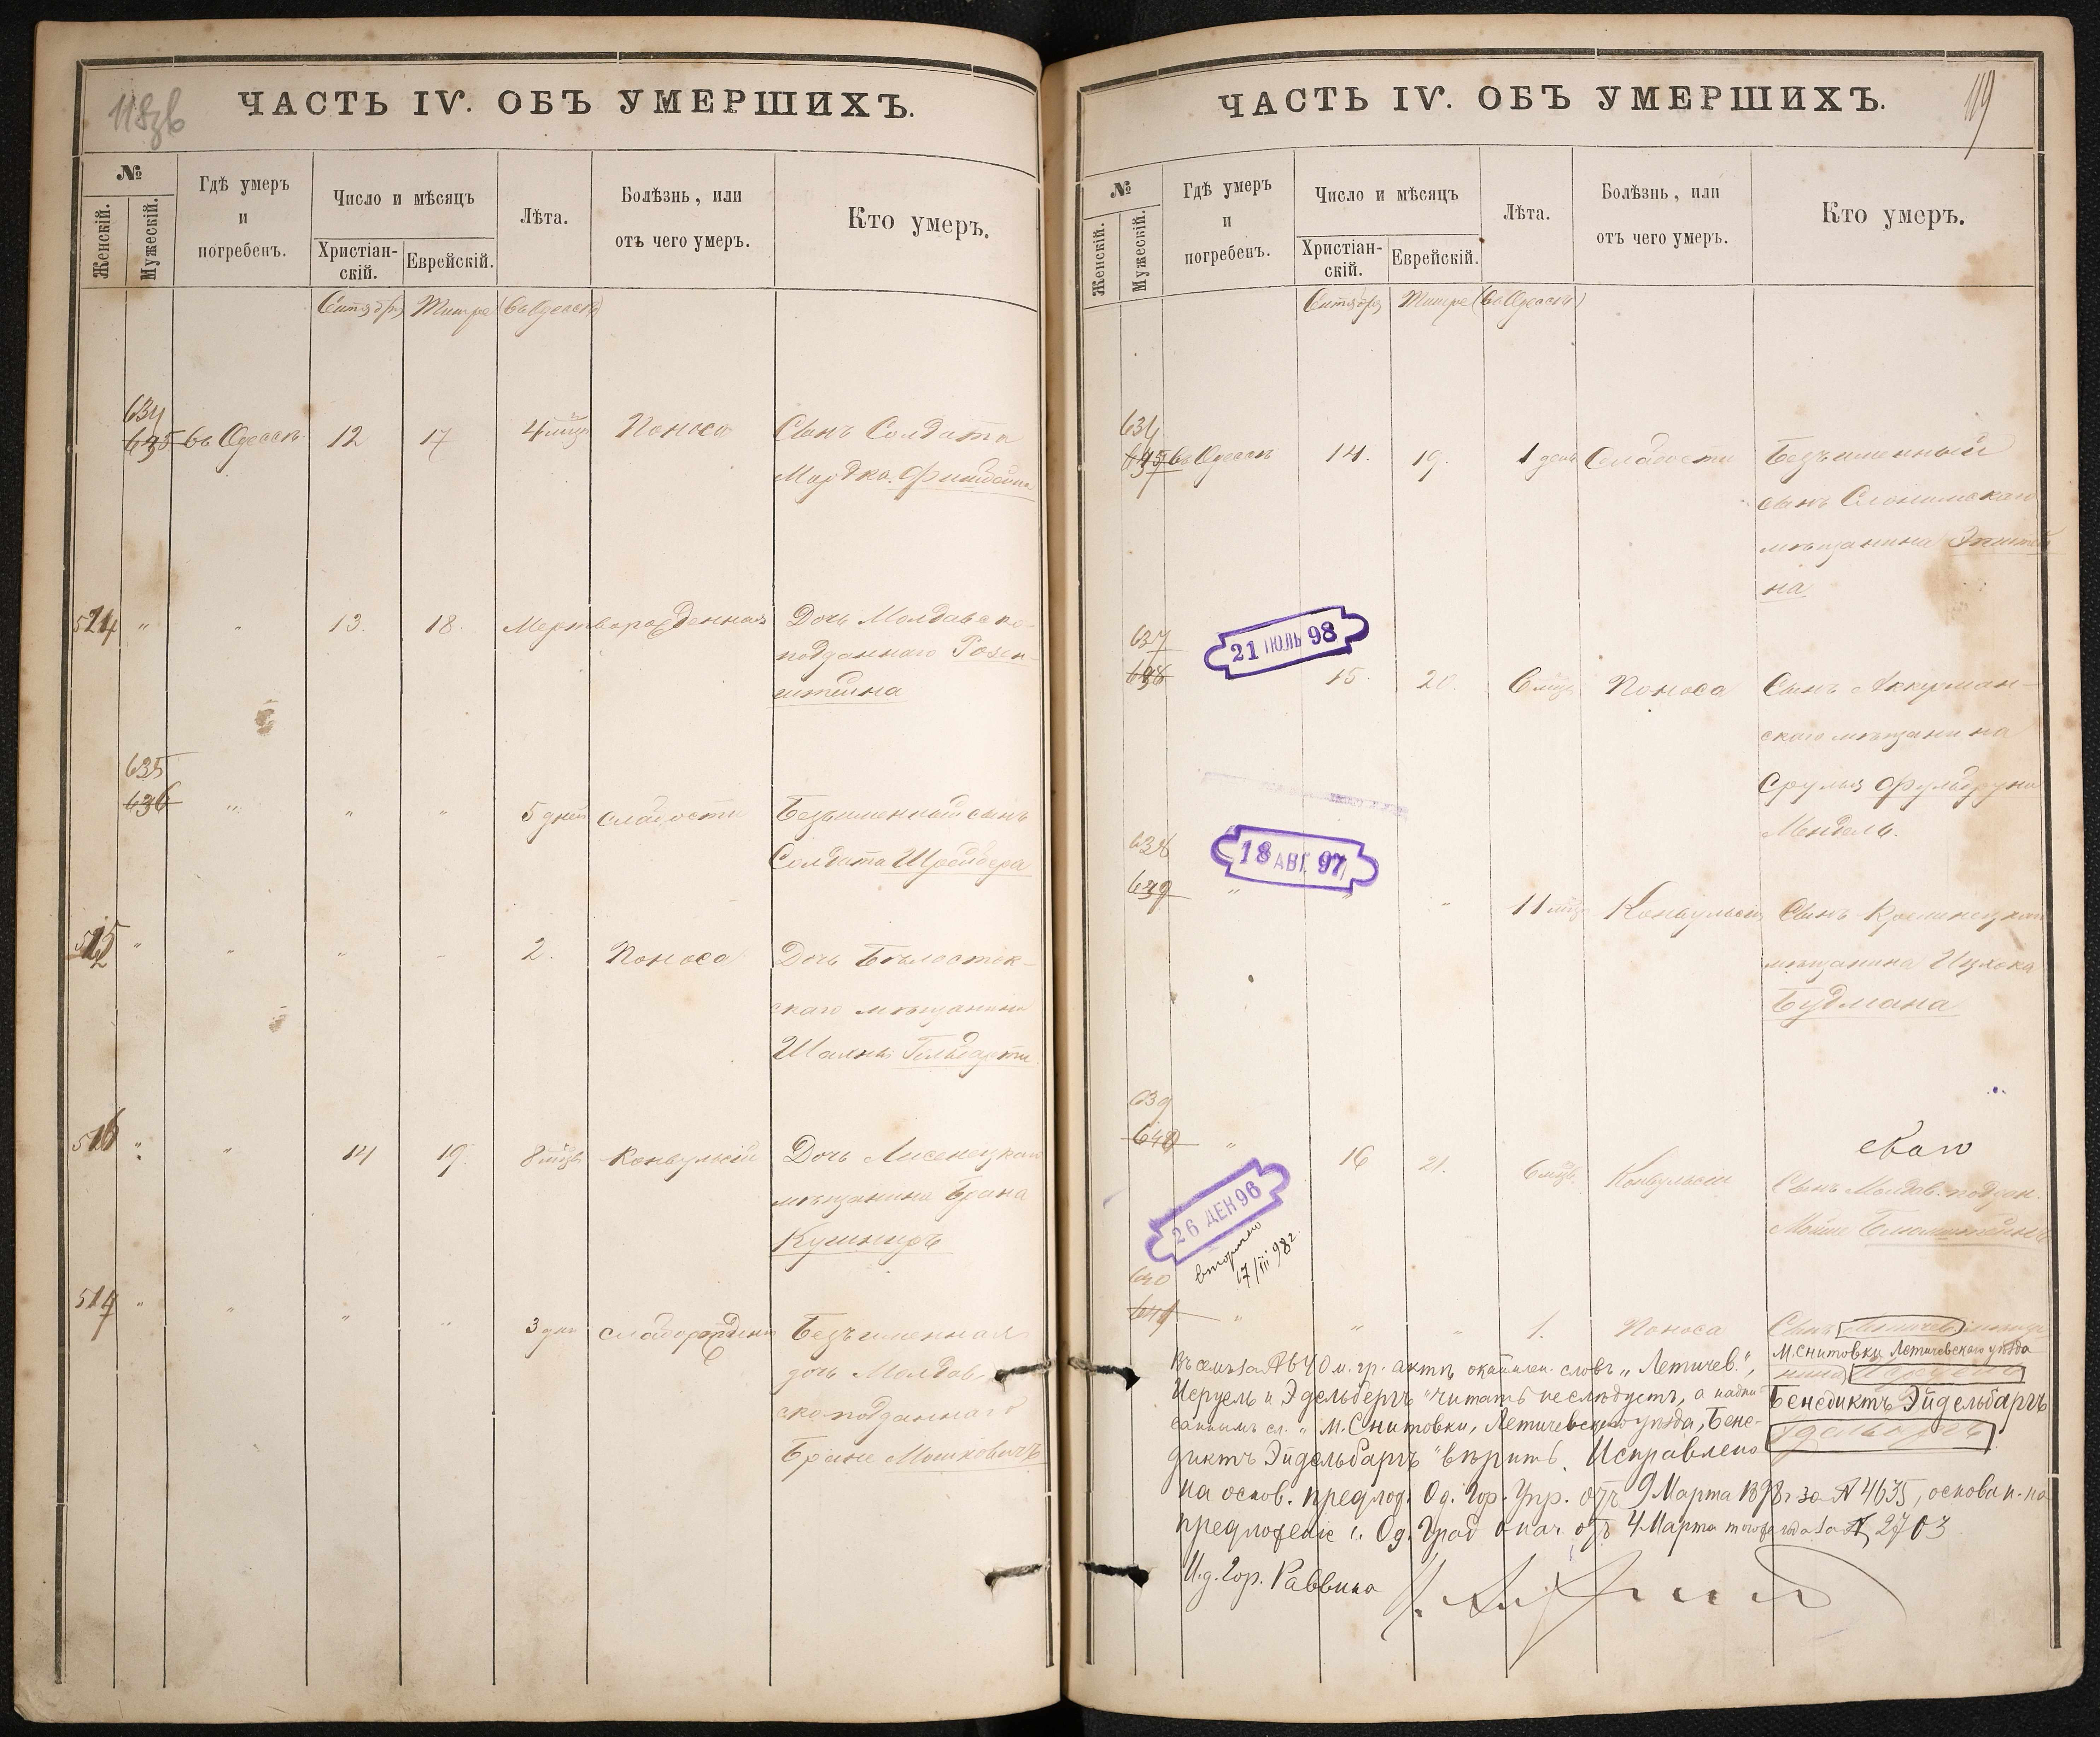 118 об
ЧАСТЬ IV. ОБЪ УМЕРШИХЪ.
№
Женскій.
Мужескій.
Гдѣ умеръ
и
погребенъ.
Число и мѣсяцъ
Христіан-
скій.
Еврейскій.
Лѣта.
Болѣзнь, или
отъ чего умеръ.
Кто умеръ.
Сентября Тишре (въ Одессѣ)
634
635 въ Одессѣ 12 17 4 мѣс Поноса Сынъ Солдата
Мордка
514 " " 13. 18. Мертворожденная Дочь Молдавско-
подданнаго Розен-
штейна
635
636 " " " 5 дней слабости Безъименный сынъ
Солдата Шрейбера
515 " " " " 2. Поноса Дочь Бѣлосток-
скаго мѣщанина
516 " " 14 19. 8 мѣс Конвульсіи Дочь
мѣщанина
Кушниръ
517 " " " " 3 дня слаборожденн Безъименная
дочь Молдав-
скоподданнаго
Мошковичъ
119
ЧАСТЬ IV. ОБЪ УМЕРШИХЪ.
№
Женскій.
Мужескій.
Гдѣ умеръ
и
погребенъ.
Число и мѣсяцъ
Христіан-
скій.
Еврейскій.
Лѣта.
Болѣзнь, или
отъ чего умеръ.
Кто умеръ.
Сентября Тишре (въ Одессѣ)
636
637 въ Одессѣ 14. 19. 1 день Слабости Безъименный
сынъ Слонимскаго
мѣщанина
на
21 ІЮЛЬ 98
637
638 15. 20. 6 мѣс Поноса Сынъ Аккерман-
скаго мѣщанина
Сруля
Мендель.
18 АВГ. 97
638
639 " " " 11 мѣс Конвульсіи Сынъ
мѣщанина Ицхока
Будмана
639
640 " 16 21. 6 мѣс. Конвульсіи скаго
Сынъ Молдав. поддан.
26 ДЕК 96
вторично
17/III 98 г.
640
641 " " " 1. Поноса Сынъ Летичев.
М. Снитовки Летичевскаго уѣзда
Бенедиктъ Эйдельбаргъ
Въ семъ за № 640 м. гр. актѣ окаймлен. словъ „Летичев.",
Исруель и Эдельбергъ" читать не слѣдуетъ, а надпи-
саннымъ сл. „М. Снитовки, Летичевскаго уѣзда, Бене-
диктъ Эйдельбаргъ" вѣрить. Исправлено
на основ. предлож. Од. Гор. Упр. отъ 9 Марта 1898 г. за № 4635, основан. на
предложеніи г. Од. Градонач. отъ 4 Марта того же года за № 2703
И. д. Гор. Раввина